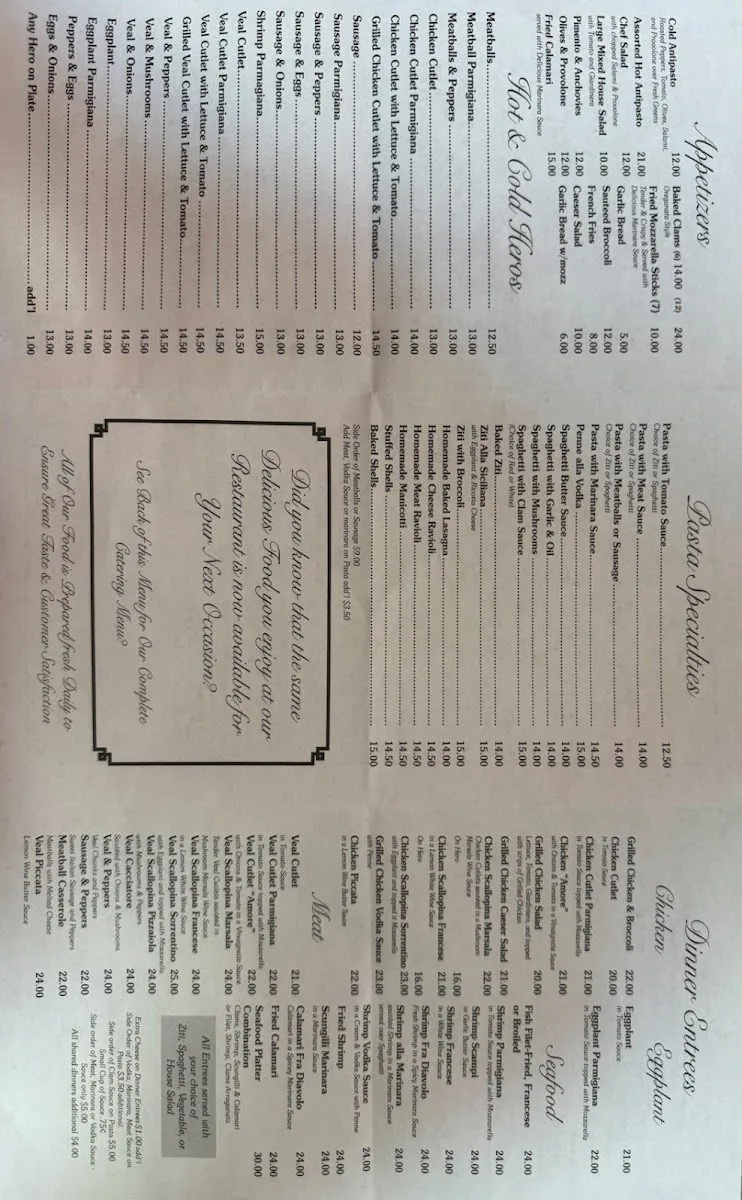 Appetizers
Cold Antipasto 12.00
Roasted Peppers, Tomato, Olives, Salami,
and Provolone over Fresh Greens
Assorted Hot Antipasto 21.00
Chef Salad 12.00
with chopped Salami & Provolone
Large Mixed House Salad 10.00
with Tomato and Giardinera
Pimento & Anchovies 12.00
Olives & Provolone 12.00
Fried Calamari 15.00
served with Delicious Marinara Sauce
Baked Clams (6) 14.00 (12) 24.00
Oreganate Style
Fried Mozzarella Sticks (7) 10.00
Tender & Crispy & Served with
Delicious Marinara Sauce
Garlic Bread 5.00
Sauteed Broccoli 12.00
French Fries 8.00
Caeser Salad 10.00
Garlic Bread w/mozz 6.00
Hot & Cold Heros
Meatballs 12.50
Meatball Parmigiana 13.00
Meatballs & Peppers 13.00
Chicken Cutlet 13.00
Chicken Cutlet Parmigiana 14.00
Chicken Cutlet with Lettuce & Tomato 14.00
Grilled Chicken Cutlet with Lettuce & Tomato 14.50
Sausage 12.00
Sausage Parmigiana 13.00
Sausage & Peppers 13.00
Sausage & Eggs 13.00
Sausage & Onions 13.00
Shrimp Parmagiana 15.00
Veal Cutlet 13.50
Veal Cutlet Parmigiana 14.50
Veal Cutlet with Lettuce & Tomato 14.50
Grilled Veal Cutlet with Lettuce & Tomato 14.50
Veal & Peppers 14.50
Veal & Mushrooms 14.50
Veal & Onions 14.50
Eggplant 13.00
Eggplant Parmigiana 14.00
Peppers & Eggs 13.00
Eggs & Onions 13.00
Any Hero on Plate add'l 1.00
Pasta Specialties
Pasta with Tomato Sauce 12.50
Choice of Ziti or Spaghetti
Pasta with Meat Sauce 14.00
Choice of Ziti or Spaghetti
Pasta with Meatballs or Sausage 14.00
Choice of Ziti or Spaghetti
Pasta with Marinara Sauce 14.50
Penne alla Vodka 15.00
Spaghetti Butter Sauce 14.00
Spaghetti with Garlic & Oil 14.00
Spaghetti with Mushrooms 14.00
Spaghetti with Clam Sauce 15.00
(Choice of Red or White)
Baked Ziti 14.00
Ziti Alla Siciliana 15.00
with Eggplant & Ricotta Cheese
Ziti with Broccoli 15.00
Homemade Baked Lasagna 14.00
Homemade Cheese Ravioli 14.50
Homemade Meat Ravioli 14.50
Homemade Manicotti 14.50
Stuffed Shells 14.50
Baked Shells 15.00
Side Order of Meatballs or Sausage $9.00
Add Meat, Vodka Sauce or marinara on Pasta add'l $3.50
Did you know that the same
Delicious Food you enjoy at our
Restaurant is now available for
Your Next Occasion?
See Back of this Menu for Our Complete
Catering Menu?
All of Our Food is Prepared fresh Daily to
Ensure Great Taste & Customer Satisfaction
Dinner Entrees
Chicken
Grilled Chicken & Broccoli 22.00
Chicken Cutlet 20.00
in Tomato Sauce
Chicken Cutlet Parmigiana 21.00
in Tomato Sauce topped with Mozzarella
Chicken "Amore" 21.00
with Onions & Tomato in a Vinegrette Sauce
Grilled Chicken Salad 20.00
Lettuce, Tomato, Giardiniera, and topped
with strips of Grilled Chicken
Grilled Chicken Caeser Salad 21.00
Chicken Scallopina Marsala 22.00
Chicken Cutlets sauteed in a Mushroom
Marsala Wine Sauce
On Hero 16.00
Chicken Scallopina Francese 21.00
in a Lemon White Wine Sauce
On Hero 16.00
Chicken Scallopina Sorrentino 23.00
with Eggplant and topped in Mozzarella
Grilled Chicken Vodka Sauce 23.00
with Penne
Chicken Piccata 22.00
in a Lemon Wine Butter Sauce
Meat
Veal Cutlet 21.00
in Tomato Sauce
Veal Cutlet Parmigiana 22.00
in Tomato Sauce topped with Mozzarella
Veal Cutlet "Amore" 22.00
with Onions & Tomato in a Vinegrette Sauce
Veal Scallopina Marsala 24.00
Tender Veal Cutlets sauteed in
Mushroom Marsala Wine Sauce
Veal Scallopina Francese 24.00
in a Lemon Wine Sauce
Veal Scallopina Sorrentino 25.00
with Eggplant and topped with Mozzarella
Veal Scallopina Pizzaiola 24.00
with Mushrooms & Peppers
Veal Cacciatore 24.00
Sauteed with Onions & Mushrooms
Veal & Peppers 24.00
Veal Chunks and Peppers
Sausage & Peppers 22.00
Sweet Italian Sausage and Peppers
Meatball Casserole 22.00
Meatballs with Melted Cheese
Veal Piccata 24.00
Lemon Wine Butter Sauce
Eggplant
Eggplant 21.00
in Tomato Sauce
Eggplant Parmigiana 22.00
in Tomato Sauce topped with Mozzarella
Seafood
Fish Filet-Fried, Francese 24.00
or Broiled
Shrimp Parmigiana 24.00
in Tomato Sauce topped with Mozzarella
Shrimp Scampi 24.00
in Garlic Butter Sauce
Shrimp Francese 24.00
in a White Wine Sauce
Shrimp Fra Diavolo 24.00
Fresh Shrimp in a Spicy Marinara Sauce
Shrimp alla Marinara 24.00
sauteed Shrimp in a Marinara Sauce
served over Spaghetti
Shrimp Vodka Sauce 24.00
in a Cream & Vodka Sauce with Penne
Fried Shrimp 24.00
Scungilli Marinara 24.00
in a Marinara Sauce
Calamari Fra Diavolo 24.00
Calamari in a Spicey Marinara Sauce
Fried Calamari 24.00
Seafood Platter 30.00
Combination
Clams, Shrimp, Scungilli & Calamari
or Filet, Shrimp, Clams Arreganata
All Entrees served with
your choice of
Ziti, Spaghetti, Vegetable, or
House Salad
Extra Cheese on Dinner Entrees $1.00 add'l
Side Order of Vodka, Marinara, Meat Sauce on
Pasta $3.50 additional
Side order of Clam Sauce on Pasta $5.00
Small Cup of Sauce 75¢
Side order of Meat, Marinara or Vodka Sauce -
Sauce only $5.00
All shared dinners additional $4.00